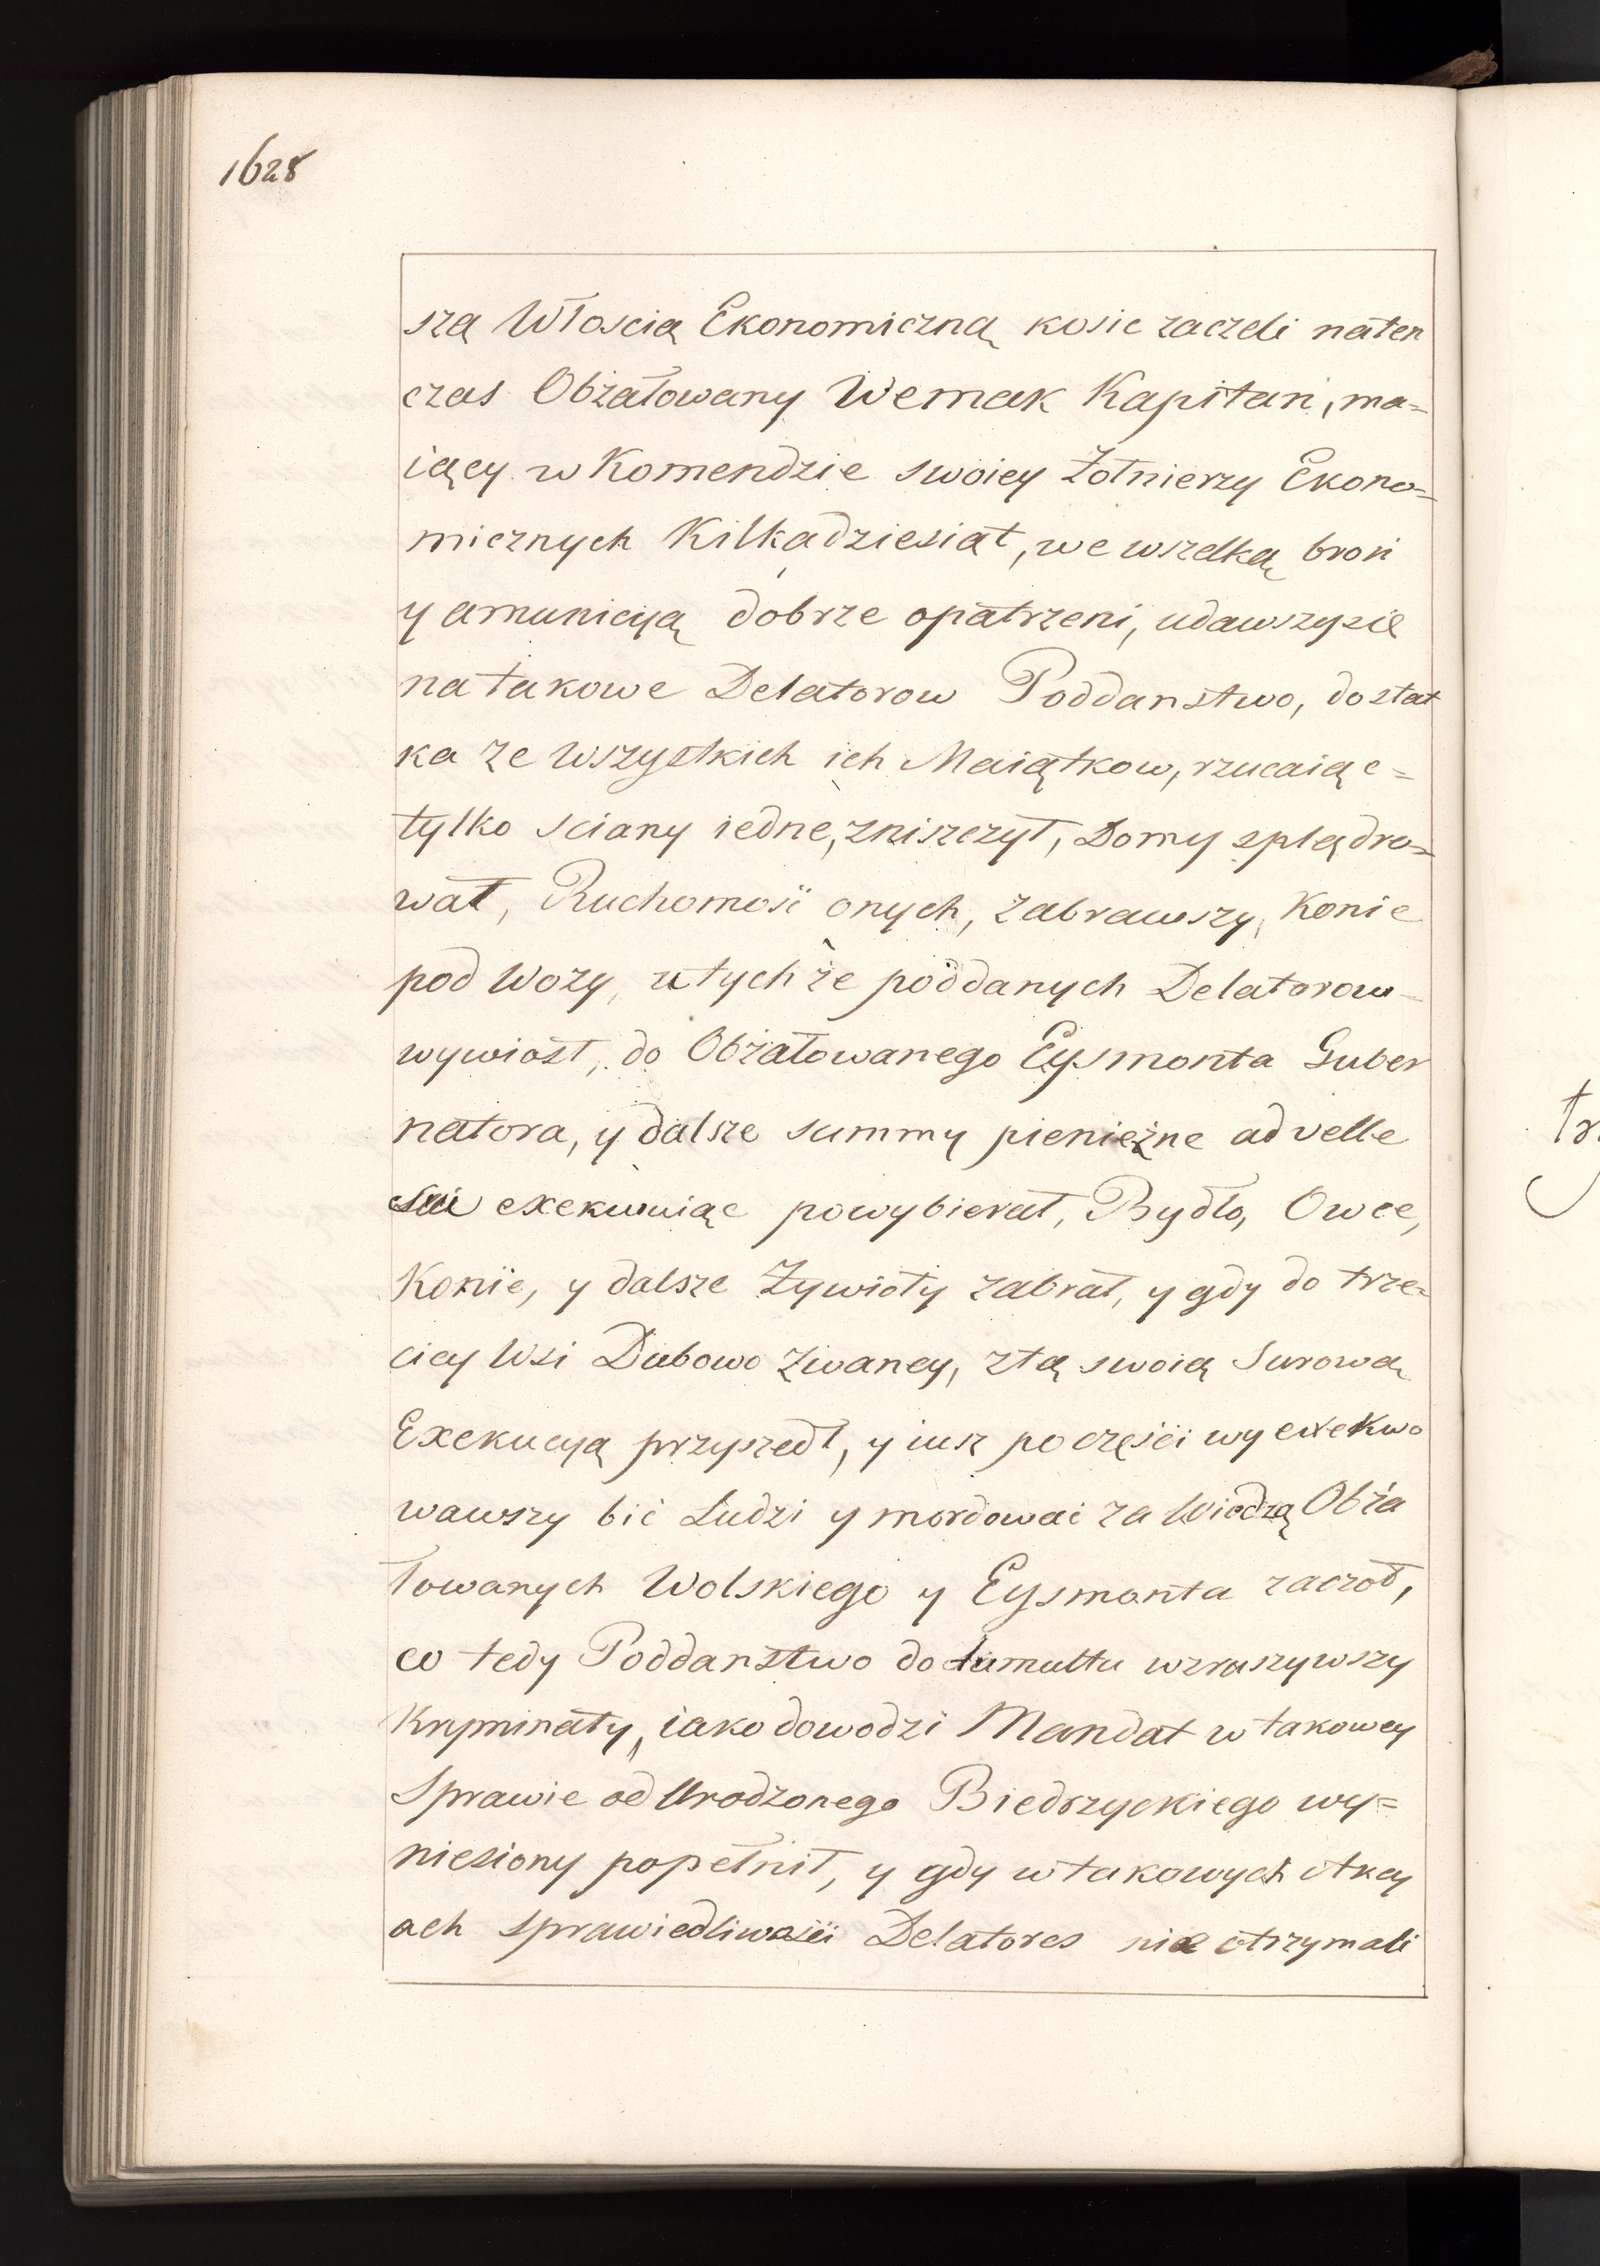 1628
szą Włoscią Ekonomiczną kosic zaczeli naten
czas Obżałowany Wernak Kapitan, ma=
iący w Komendzie swoiey Żołnierzy Ekono=
micznych Kilkądziesiąt, we wszelką broń
y amunicyą dobrze opatrzeni, udawszysie
na takowe Delatorow Poddanstwo, do stat
ka ze wszystkich ich Maiątkow, rzucaiąc=
tylko sciany iedne, zniszczył, Domy splądro=
wał, Ruchomośi onych, zabrawszy, Konie
pod Wozy, u tychże poddanych Delatorow
wywiosł, do Obżałowanego Eysmonta Guber
natora, y dalsze summy pienieżne ad velle
sui exekwuiąc powybierał, Bydło, Owce,
Konie, y dalsze Żywioły zabrał, y gdy do trze=
ciey Wsi Dubowo Zwaney, ztą swoią Surową
Exekucyą przyszedł, y iusz po częsci wy exekwo
wawszy bić Ludzi y mordować za Wiedzą Obża
łowanych Wolskiego y Eysmonta zaczoł,
co tedy Poddanstwo do tumultu wzruszywszy
Kryminały, iako dowodzi Mandat w takowey
Sprawie od Urodzonego Biedrzyckiego wy=
niesiony popełnił, y gdy w takowych Akcy
ach sprawiedliwośii Delatores nie otrzymali